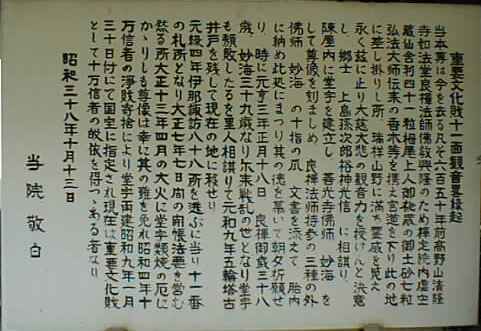 重要文化財十一面観音畧縁起
当本尊は今を去る凡そ六百五十年前高野山清経
寺如法堂良禅法師佛教興隆のため禅定院内虚空
蔵仙舎利四十一粒
弘法大師伝来の香木等を携え官道を下り此の地
に差し掛りし所 瑞祥山野に満ち霊感を覚え
永く茲に止り大慈大悲の観音力を授けんと決意
し 郷士 上島孫次郎裕仲光信 に相謀り
諌屋内に堂宇を建立し 善光寺佛師 妙海 を
して尊像を刻ましめ 良禅法師持参の三種の外
佛師 妙海 の十指の爪 文書を添えて 胎内
に納め此処にまつり其の徳を慕いて朝夕祈願せ
り 時に元亨三年正月十八日 良禅御歳三十八
歳、妙海三十九歳なり 爾来戦乱の世となり堂宇
も頽敗したるを里人相謀りて元和九年五輪塔古
井戸を残して現在の地に移せり
元禄四年伊那諏訪八十八所を選ぶに当り十一番
の札所となり大正七年七日間の開帳法要を営む
然る所大正十三年四月の大火に堂宇類焼の厄に
かゝりしも尊像は幸に其の難を免れ昭和四年十
万信者の浄財寄捨により堂宇再建昭和九年一月
三十日付にて国宝に指定され現在は重要文化財
として十万信者の帰依を得つゝある者なり
昭和三十八年十月十三日
当院敬白